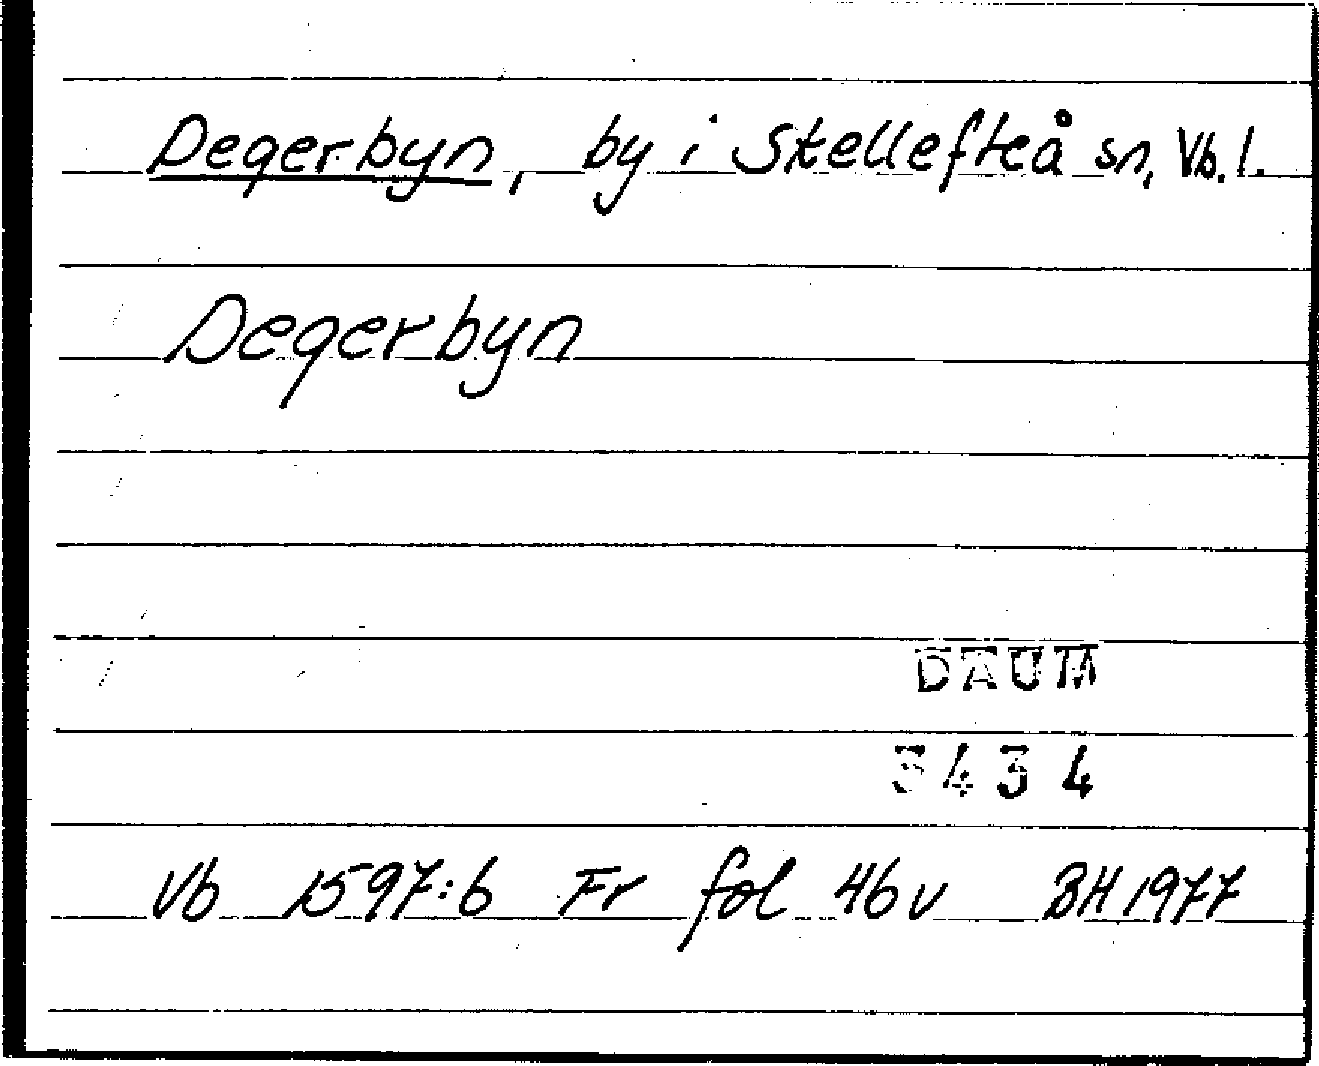 Degerbyn, by i Skellefteå sn, Vb. l.
Degerbyn
DAUM
3434
Vb 1597:6 Fr fol 46v BH 1977